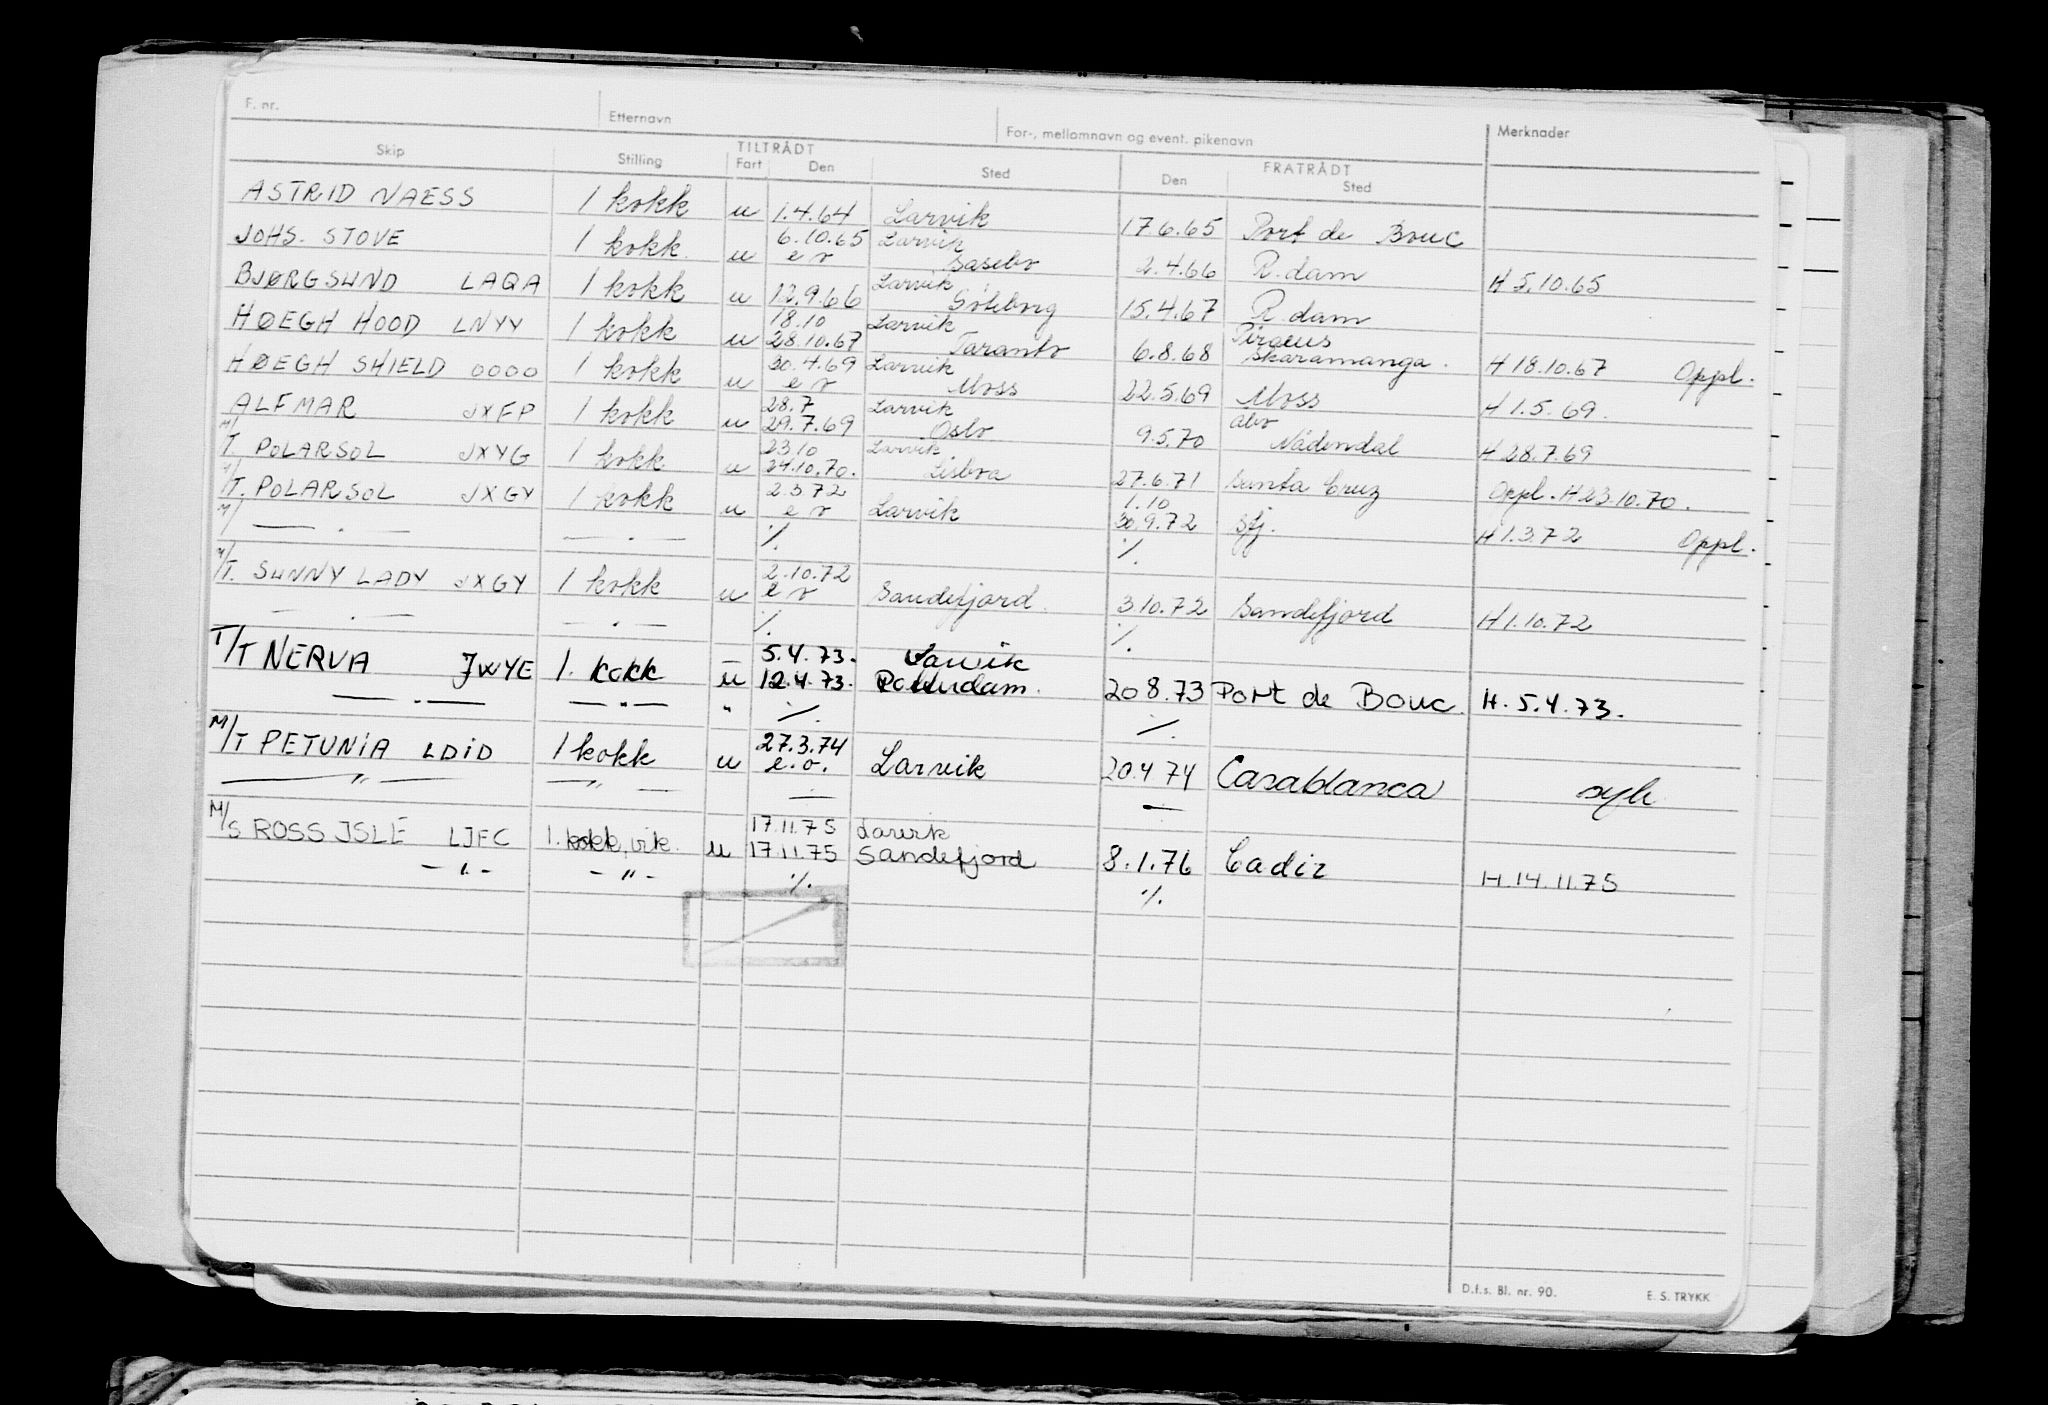 F. nr. Etternavn For-, mellomnavn og event. pikenavn Merknader
Skip Stilling TILTRÅDT Fart Den Sted FRATRÅDT Den Sted
ASTRID NAESS 1 kokk u 1.4.64 Larvik 17.6.65 Port de Bouc
JOHS. STOVE 1 kokk u 6.10.65 Larvik
e o Sasebo 2.4.66 R.dam H 5.10.65
BJØRGSUND LAQA 1 kokk u 12.9.66 Larvik
Göteborg 15.4.67 R.dam
HØEGH HOOD LNYY 1 kokk u 18.10 Larvik Piraeus
28.10.67 Taranto 6.8.68 Skaramanga. H 18.10.67 Oppl.
HØEGH SHIELD OOOO 1 kokk u 30.4.69 Larvik
e o Moss 22.5.69 Moss H 1.5.69.
ALFMAR JXFP 1 kokk u 28.7 Larvik Åbo
29.7.69 Oslo 9.5.70 Nådendal H 28.7.69
M/T. POLARSOL JXYG 1 kokk u 23.10 Larvik
24.10.70. Lisboa 27.6.71 Santa Cruz Oppl. H 23.10.70.
M/T. POLARSOL JXGY 1 kokk u 2.3.72 1.10
e o Larvik 30.9.72 Sfj. H 1.3.72 Oppl.
M/ — . — — . — ./. ./.
M/T. SUNNY LADY JXGY 1 kokk u 2.10.72
e o Sandefjord. 3.10.72 Sandefjord H 1.10.72
— . — — . — ./. ./.
T/T NERVA JWYE 1. kokk — 5.4.73. Larvik
u 12.4.73. Rotterdam. 20.8.73 Port de Bouc. H. 5.4.73.
— . — — . — " ./. ./.
M/T PETUNIA LDID 1 kokk u 27.3.74
e.o. Larvik 20.4.74 Casablanca syk
— " — — " — ./. ./.
M/S ROSS ISLE LJFC 1. kokk, vik. u 17.11.75 Larvik
17.11.75 Sandefjord 8.1.76 Cadiz H. 14.11.75
— " — — " — ./. ./.
D.f.s. Bl. nr. 90. E. S. TRYKK